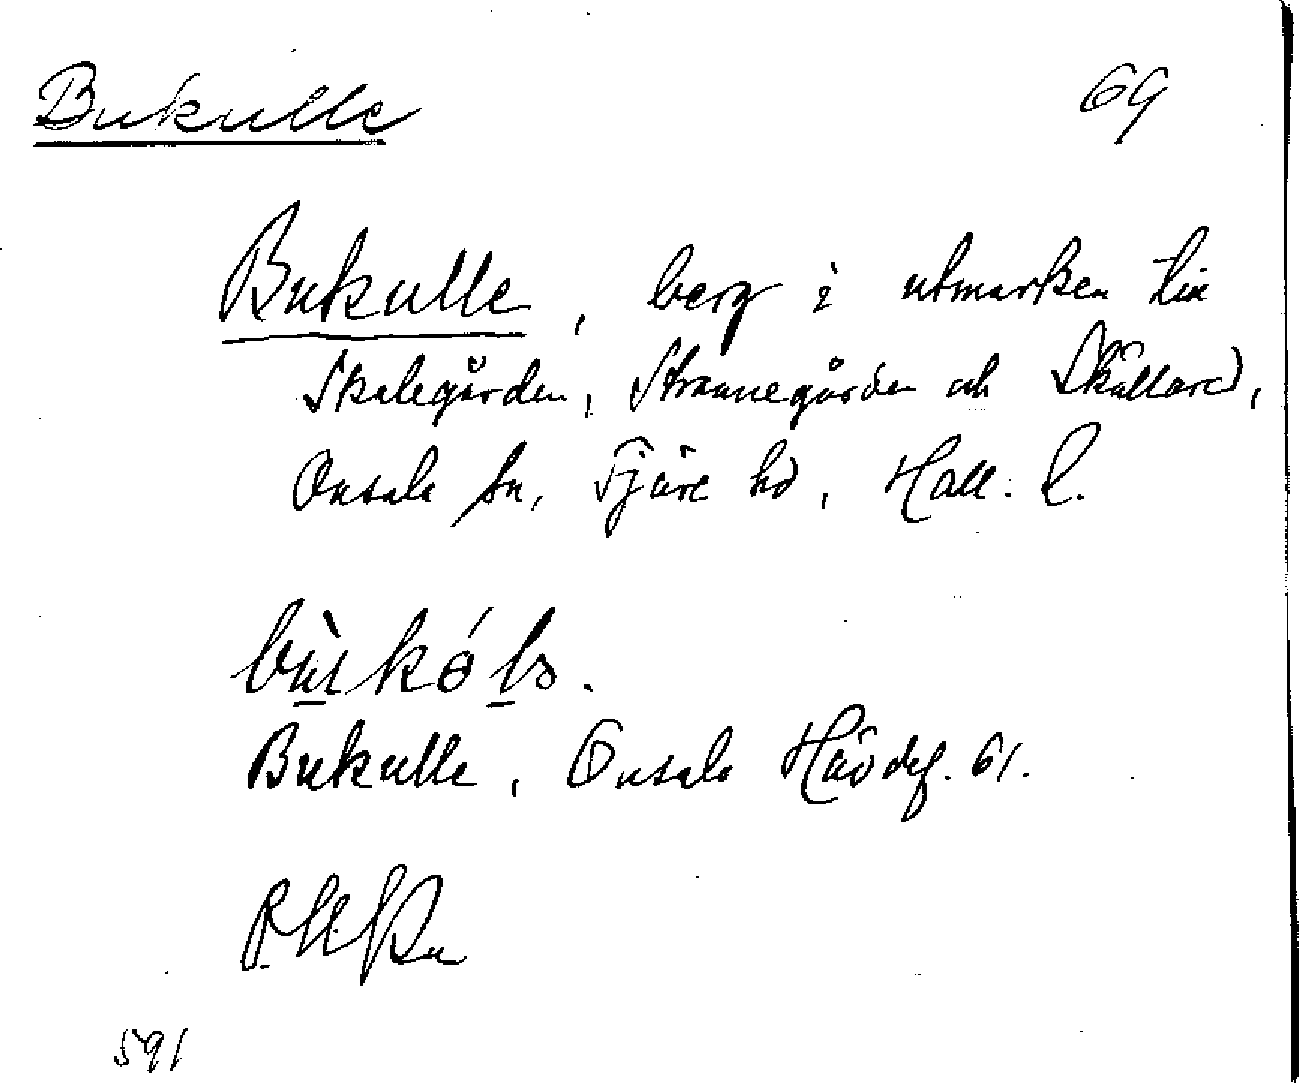 Bukulle 69
Bukulle, berg i utmarken till
Skalegården, Strannegården och Skällared,
Onsala sn, Fjäre hd, Hall. l.
Bukulle, Onsala Hävdef. 61.
591